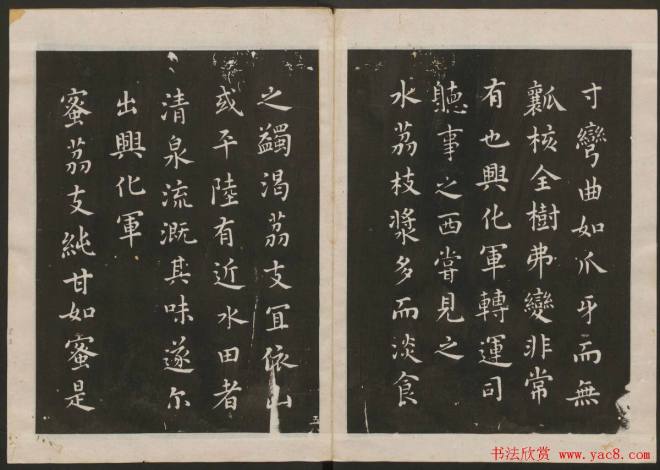 寸彎曲如爪牙而無
瓤核全樹弗變非常
有也興化軍轉運司
聽事之西嘗見之
水荔枝漿多而淡食
之蠲渴荔支宜依山
或平陸有近水田者
清泉流溉其味遂尔
出興化軍
蜜荔支純甘如蜜是
五
书法欣赏
www.yac8.com